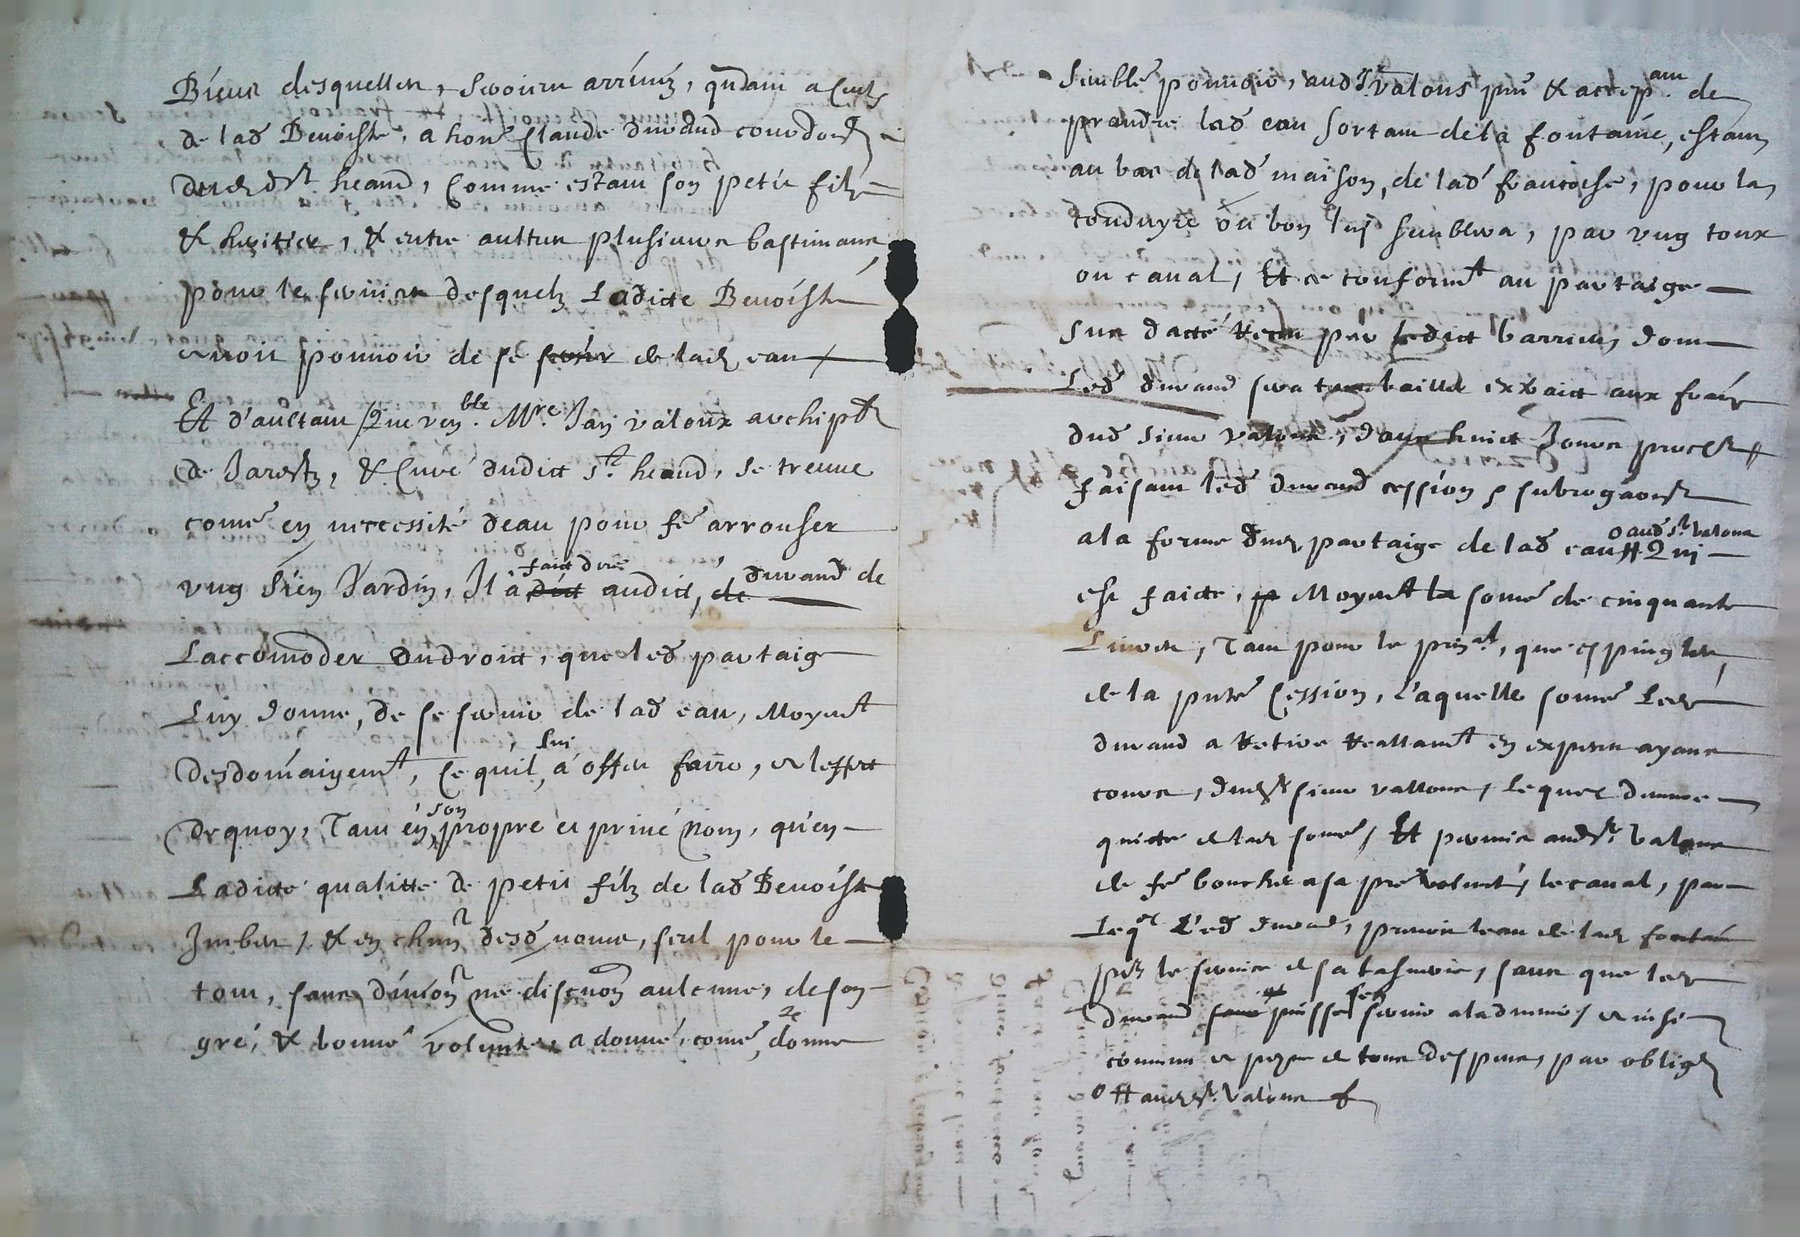 Biens desquelles, seroient arrivés, quant a ceulx
de lad Benoiste, a hon Claude durand cordo
dud St heand, Comme estant son petit filz
& heritier, & entre aultres plusieurs bastimans
pour le service desquelz Ladicte Benoiste
avoit pouvoir de se servir de lad eau
Et d'aultant Que venble Mre Jan valoux archiptre
de Jarestz, & Curé dudict St heand, se treuve
comé en necessité deau pour fé arrouser
ung sien Jardin, Il a faict dire audict, durand de
Laccomoder dudroict, que led partaige
Luy donne, de se servir de lad eau, Moynt
desdomaigemt, Ce quil lui a offert faire, a leffect
Dequoy, Tant en son propre et privé nom, qu'en
Ladicte qualitté de petit filz de lad Benoiste
Imbert, & en chun desd noms, seul pour le
tout, sans division ne discuon aulcune, de son
gré, & bonne volunté, a donné, comé donne
semblé pouvoir, aud Sr valous pnt & acceptant de
prandre lad eau sortant de la fontaine, estant
au bas de lad maison, de lad francoise, pour la
conduyre ou bon luy semblera, par ung
ou canal, Et ce conformt au partaige
sus datté receu par ledict barrieu dont
Led durand sera baillé extraict aux frais
dud sieur valous, dans huict Jours
faisant led durand cession & subrogaon
a la forme dud partaige de lad eau aud Sr valous Qui
est faicte, Moynt la somé de cinquante
Livres, Tant pour le prinal, que espingles,
de la pnte Cession, Laquelle somé Led
durand a retiré reallamt en especes ayans
cours, dud sieur vallous, lequel
quicte de lad somé, Et promis aud Sr Valous
de fé boucher a sa pre volunté, le canal, par
Leql Led durand, prenoit leau de lad fontaine
pr le service de sa tasnerie, sans que led
durand puisse sen servir a ladvenir,
de tous despens, par oblig
aud Sr Valous